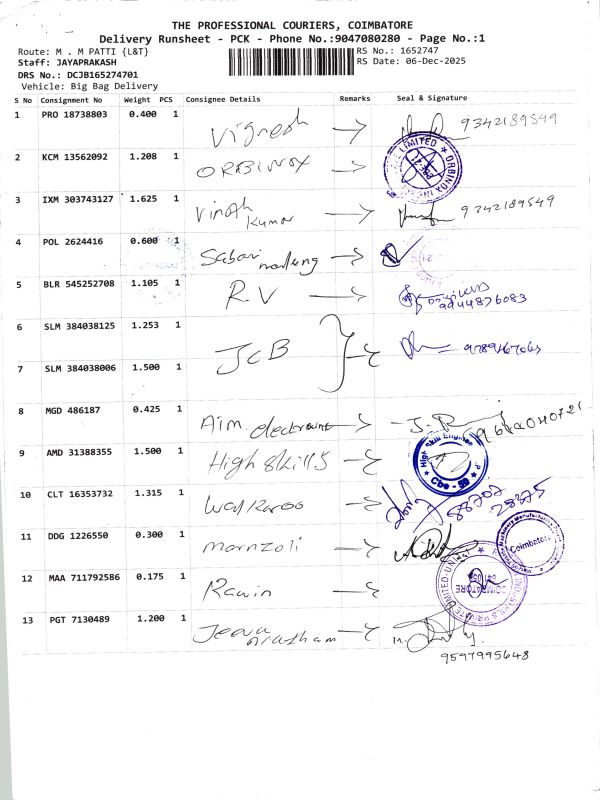 THE PROFESSIONAL COURIERS, COIMBATORE
Delivery Runsheet - PCK - Phone No.:9047080280 - Page No.:1
Route: M . M PATTI {L&T}
RS No.: 1652747
Staff: JAYAPRAKASH
RS Date: 06-Dec-2025
DRS No.: DCJB165274701
Vehicle: Big Bag Delivery
S No Consignment No Weight PCS Consignee Details Remarks Seal & Signature
1 PRO 18738803 0.400 1 Vignesh 9342189549
2 KCM 13562092 1.208 1 ORBINOX
LIMITED ORBINOX
3 IXM 303743127 1.625 1 Vinoth Kumar 9342189549
4 POL 2624416 0.600 1 Sabari
5 BLR 545252708 1.105 1 R.V 9944876083
6 SLM 384038125 1.253 1 JCB
7 SLM 384038006 1.500 1
8 MGD 486187 0.425 1 Aim
9 AMD 31388355 1.500 1 High skills
High Skill Engineer
Cbe - 59
10 CLT 16353732 1.315 1 88707 28375
11 DDG 1226550 0.300 1
Coimbatore
12 MAA 711792586 0.175 1
PRIVATE LIMITED
COIMBATORE
13 PGT 7130489 1.200 1 Jeeva
9597995648